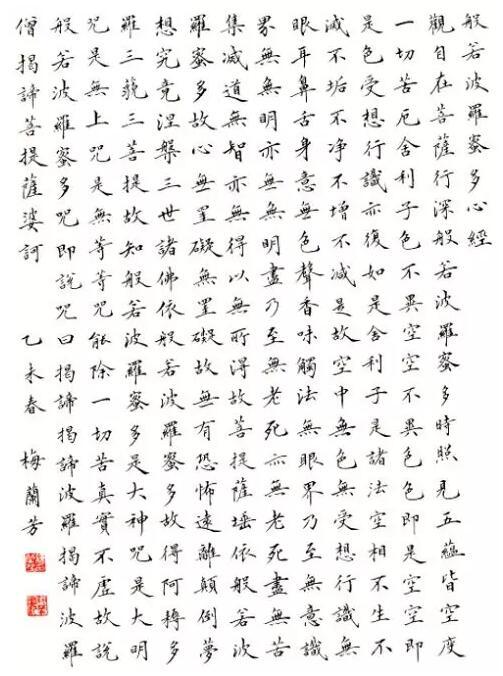 般若波羅蜜多心經
觀自在菩薩行深般若波羅蜜多時照見五蘊皆空度
一切苦厄舍利子色不異空空不異色色即是空空即
是色受想行識亦復如是舍利子是諸法空相不生不
滅不垢不净不增不减是故空中無色無受想行識無
眼耳鼻舌身意無色聲香味觸法無眼界乃至無意識
界無無明亦無無明盡乃至無老死亦無老死盡無苦
集滅道無智亦無得以無所得故菩提薩埵依般若波
羅蜜多故心無罣礙無罣礙故無有恐怖遠離顛倒夢
想究竟涅槃三世諸佛依般若波羅蜜多故得阿耨多
羅三藐三菩提故知般若波羅蜜多是大神咒是大明
咒是無上咒是無等等咒能除一切苦真實不虛故説
般若波羅蜜多咒即説咒曰揭諦揭諦波羅揭諦波羅
僧揭諦菩提薩婆訶 乙未春 梅蘭芳